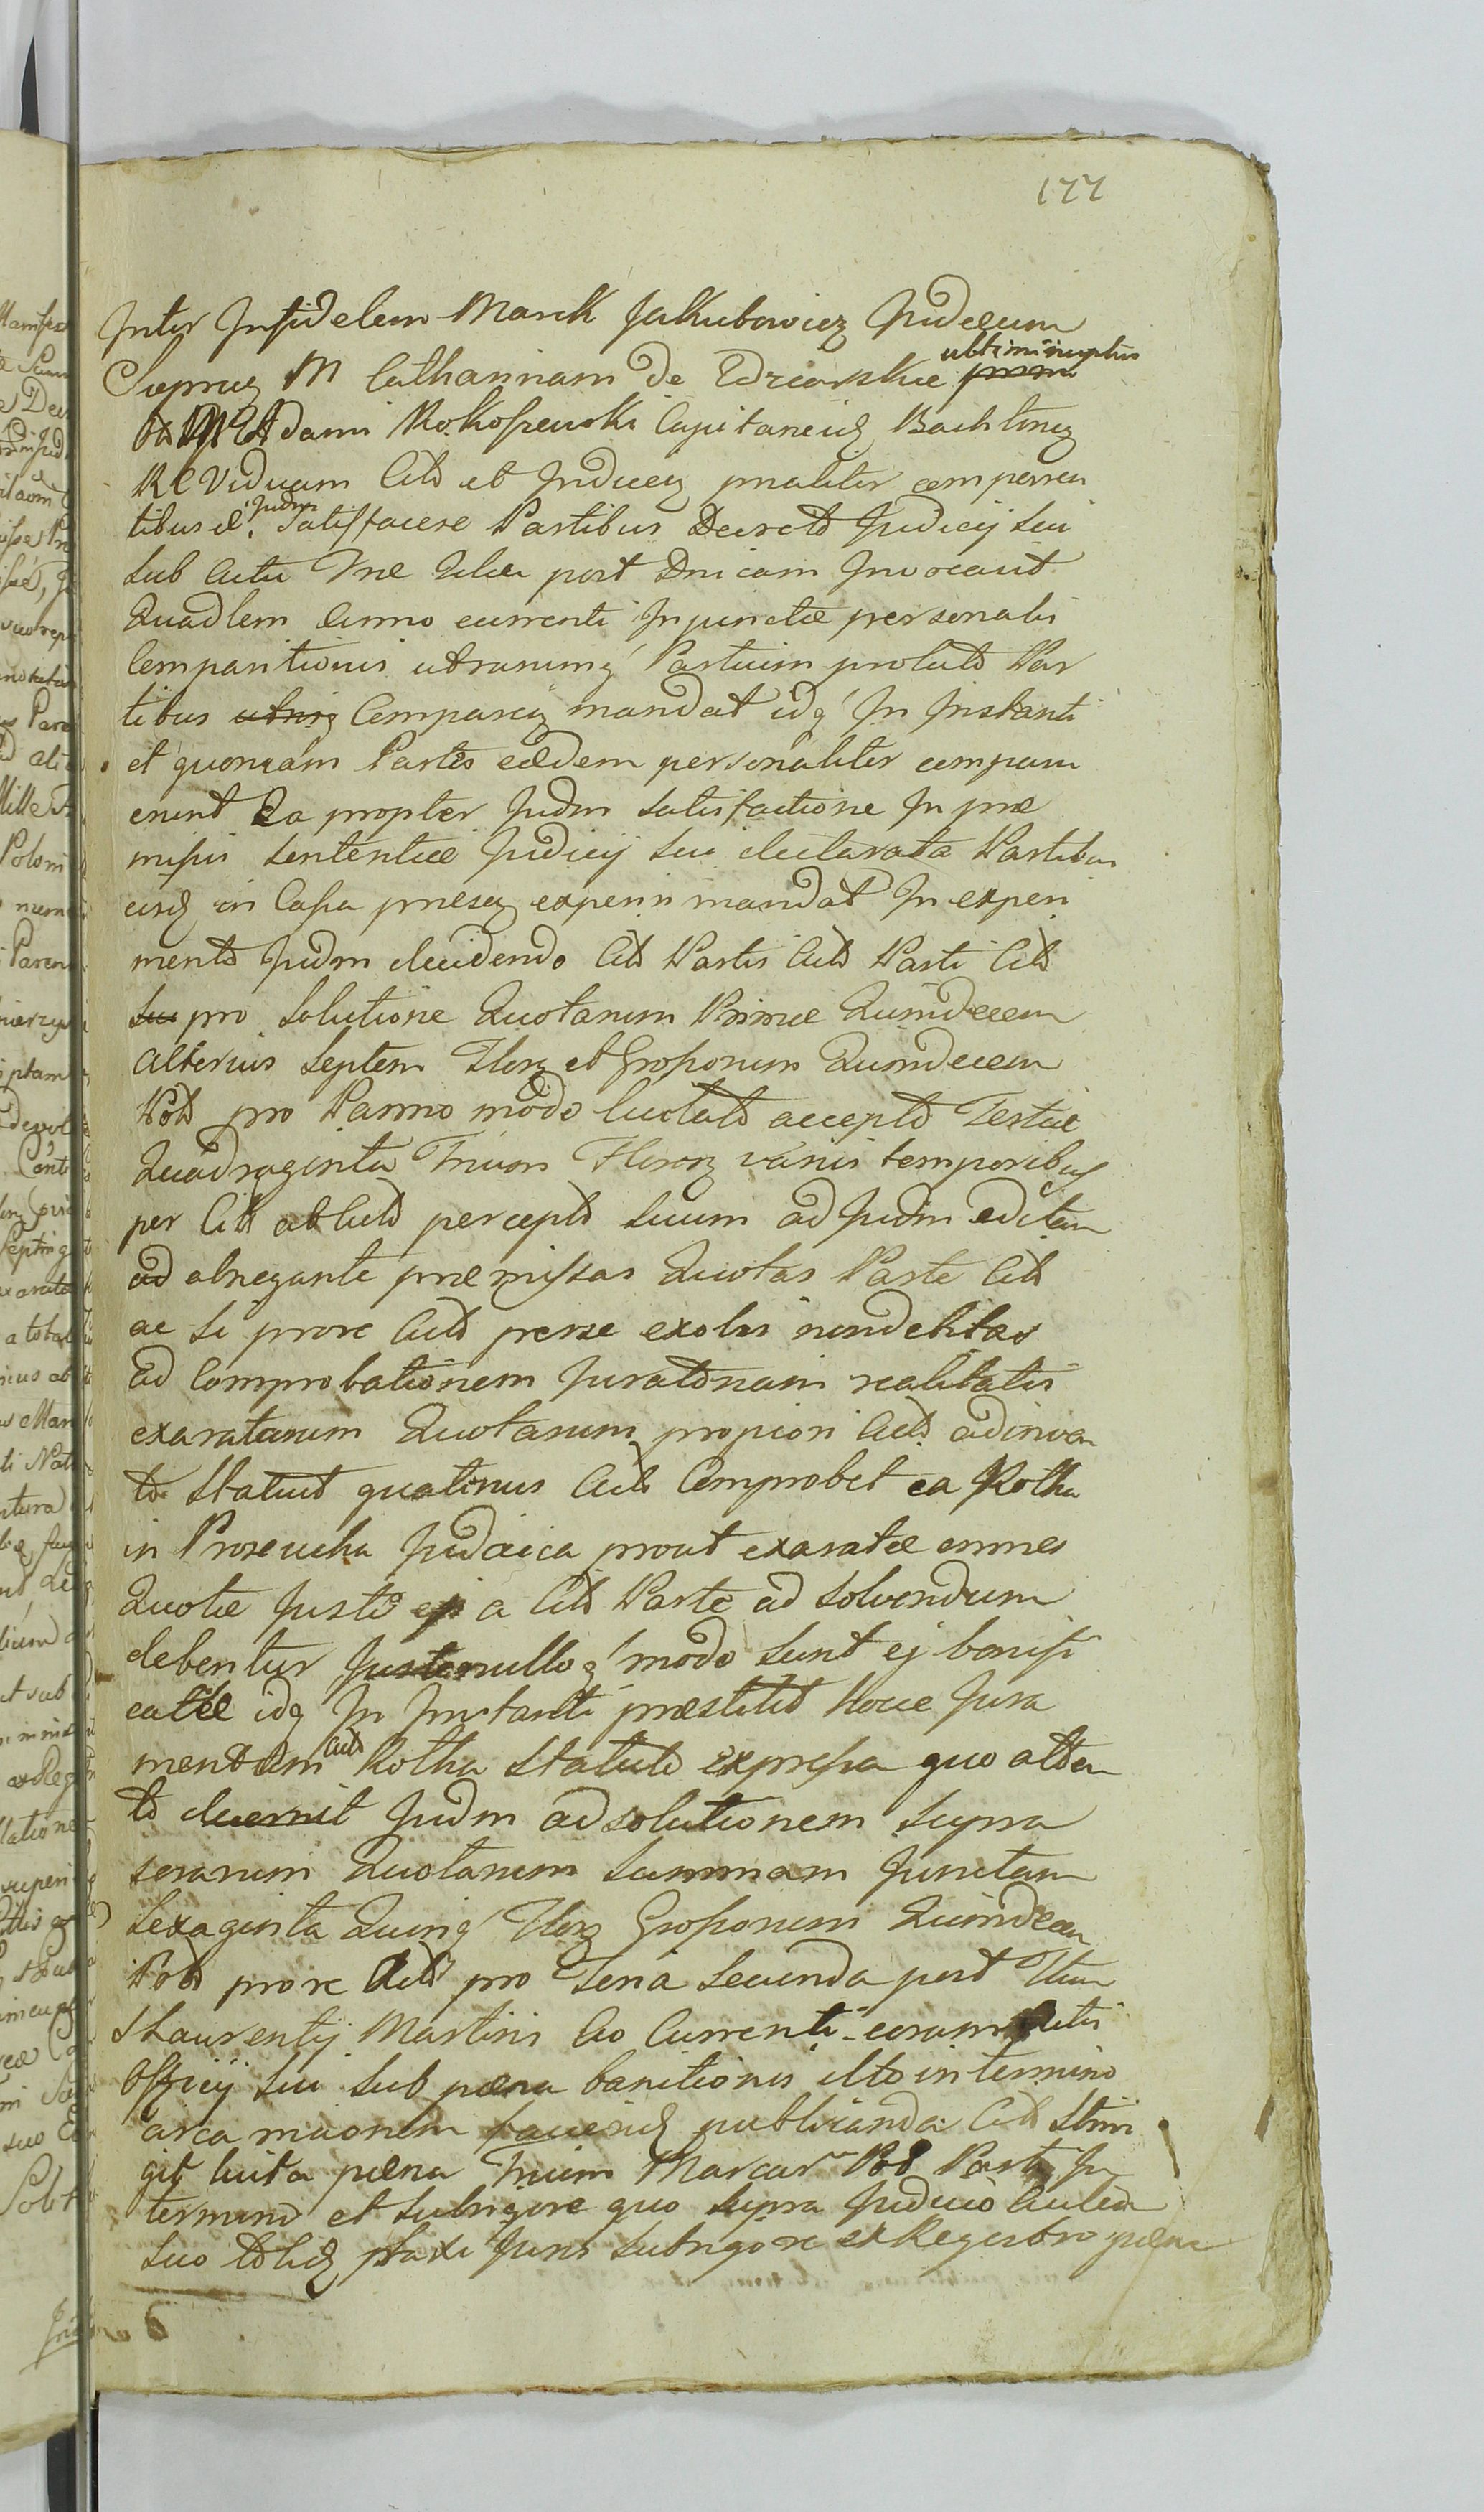 177
Inter Infidelem Marek Jakubowicz Judæum
M Catharinam de Zdziarskie ultimi nuptus
Adami Rokoszewski Capitanei
Viduam Citt et prmaliter comparen
tibus Judm Satisfacere Partibus Decreto Judicij sui
sub Actu post Dnicam Invocavit
Quadlem Anno currenti Injunctæ personalis
Comparitionis utrarumq Partium prolato Par
tibus utrisq mandat idq In Instanti
et quoniam Partes eædem personaliter comparu
erunt Ea propter Judm satisfactione In præ
missis Sententiæ Judicij sui declarata Partibus
in Causa mandat In experi
mento Judm decidendo Citt Partis Actt Parti Citt
pro Solutione Quotarum Primæ Quindecem
alterius Septem Flor et Grossorum Quindecem
Pol pro Panno modo accepto Tertiæ
Quadraginta Trium Floror varijs temporibus
per Citt ab Actt percepto suum ad Judm editam
ad abnegante præmissas Quotas Parte Citt
ac si prore Actt exolvi nondebitas
ad Comprobationem Juratoriam realitatis
exaratarum Quotarum propiori Actt adinven
to Statuit quatinus Actt Comprobet ea Rotha
in Proseucha Judaica prout exaratæ omnes
Quotæ Juste a Citt Parte ad solvendum
debentur nulloq modo sunt ej bonifi
catæ idq In Instanti præstitit Hocce Jura
mentum Actt Rotha Statuto expressa quo atten
to decernit Judm ad solutionem supra
Quotarum Summam Junctam
Sexaginta Quinq Flor Grossorum Quindecem
Pol prore Actt pro Feria Secunda post Ftum
S Laurentij Martiris Ao Currenti coram Actis
Officij sui sub pæna banitionis illo in termino
publicanda Citt Strin
git luita pæna Trium Marcar Pol Parti In
termino et subrigore quo supra Judicio autem
suo Juris subrigore ex Regestro pæna